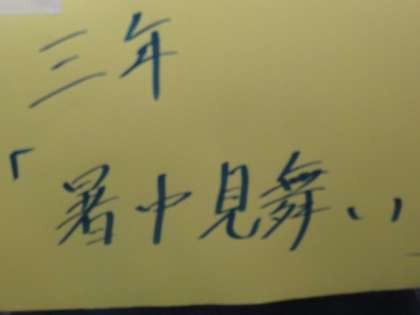 三年
「暑中見舞い」